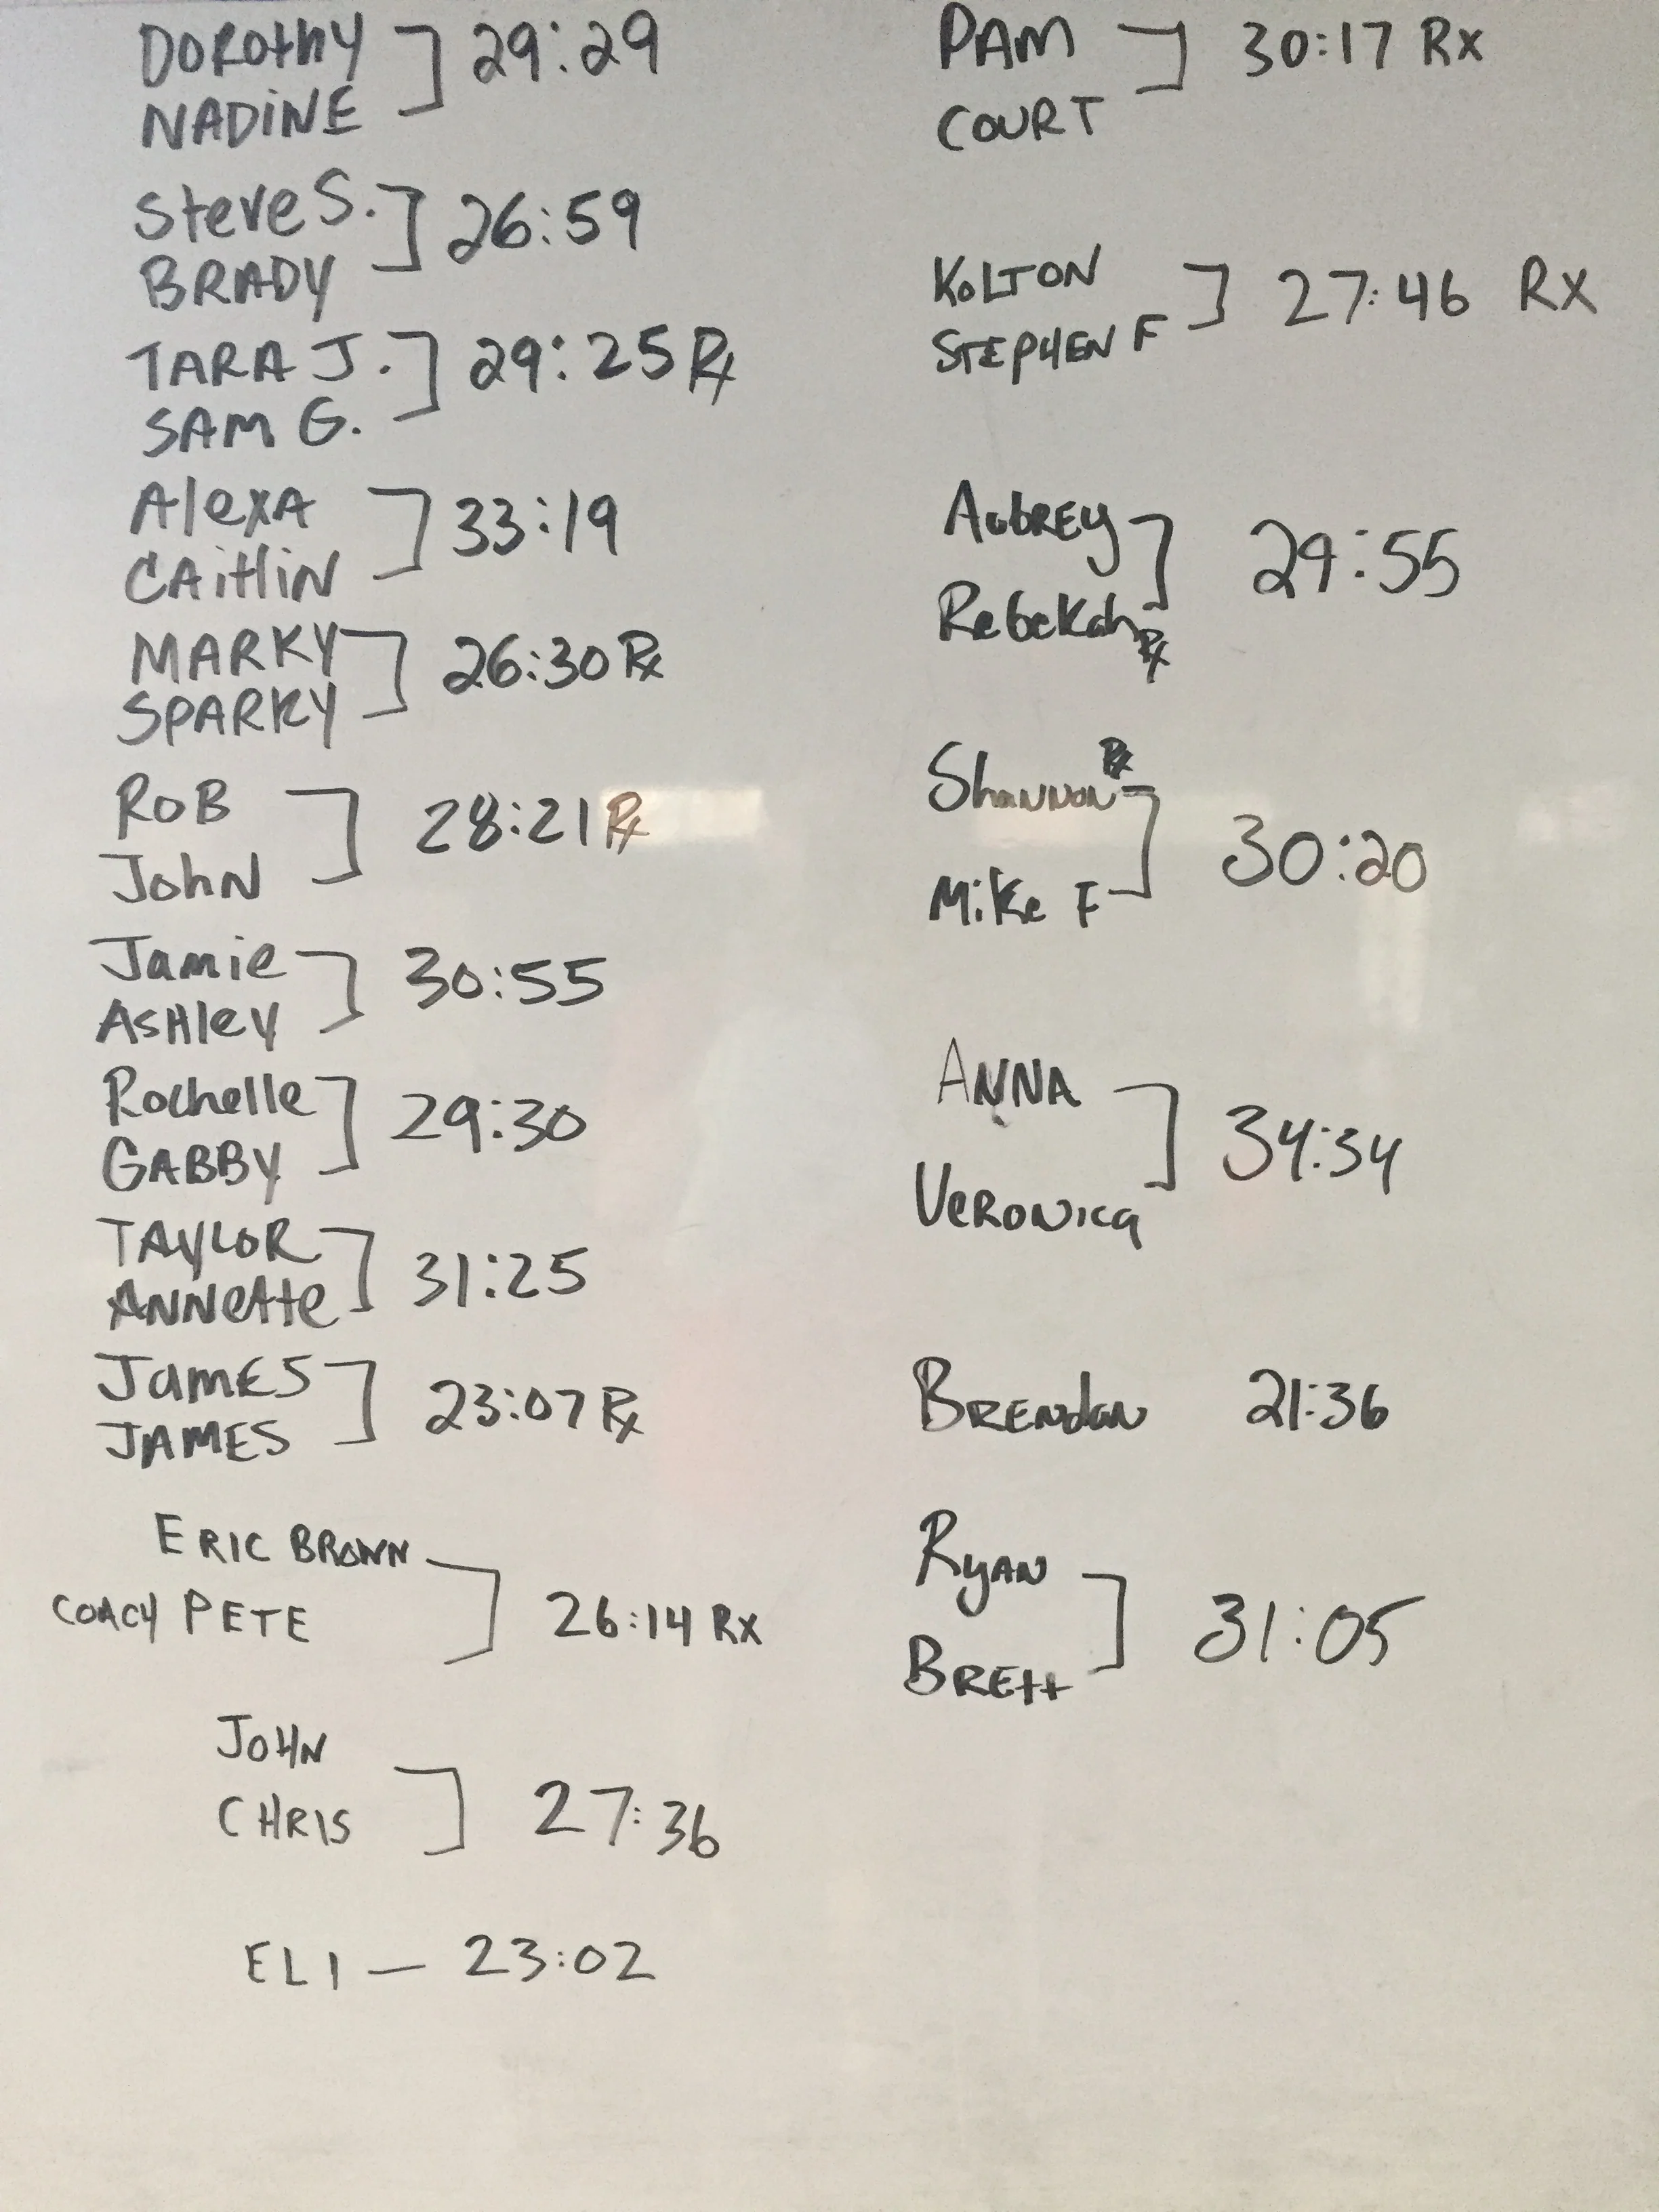 Dorothy
NADiNE
29:29
Steve S.
BRADY
26:59
TARA J.
SAM G.
29:25 Rx
AlexA
CAitliN
33:19
MARKY
SPARKY
26:30 Rx
RoB
JohN
28:21 Rx
Jamie
AsHley
30:55
Rochelle
GABBY
29:30
TAYLOR
ANNette
31:25
JamES
JAMES
23:07 Rx
ERIC BROWN
COACH PETE
26:14 Rx
JOHN
CHRIS
27:36
ELI — 23:02
PAM
COURT
30:17 Rx
KOLTON
STEPHEN F
27:46 Rx
AubREy
Rebekah Rx
29:55
Shannon Rx
Mike F
30:20
ANNA
VeRONica
34:34
BRENdan 21:36
RyAN
BREtt
31:05